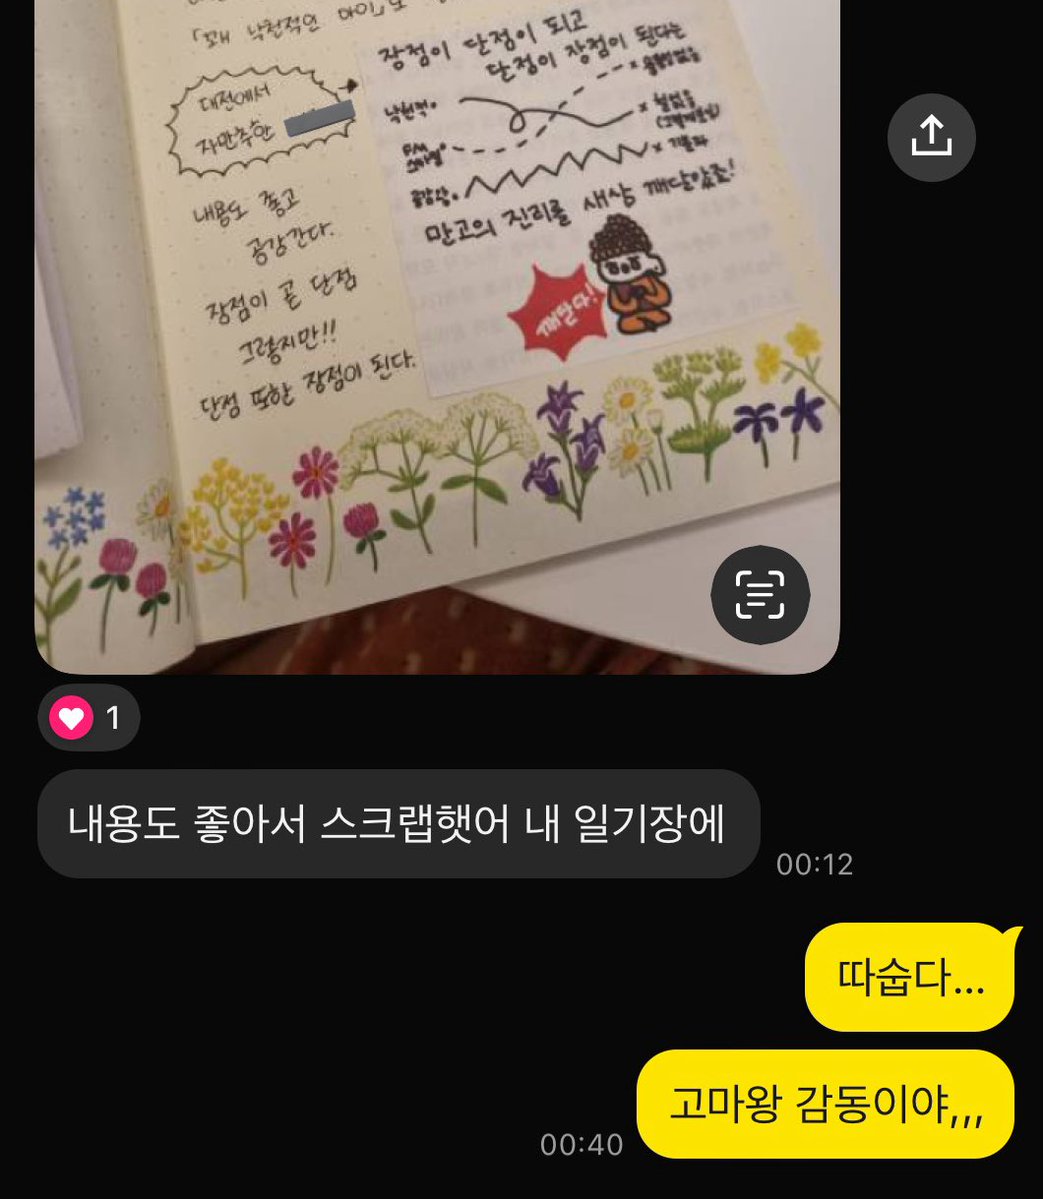 「꽤 낙천적인 아이」로
장점이 단점이 되고
단점이 장점이 된다는
대전에서
자만추한
낙천적
융통성없음
철없음
FM
스타일
공감왕
기몰자
만고의 진리를 새삼 깨달았죠!
깨달다!
내용도 좋고
공감간다.
장점이 곧 단점
그렇지만!!
단점 또한 장점이 된다.
1
내용도 좋아서 스크랩햇어 내 일기장에
00:12
따숩다...
고마왕 감동이야,,,
00:40